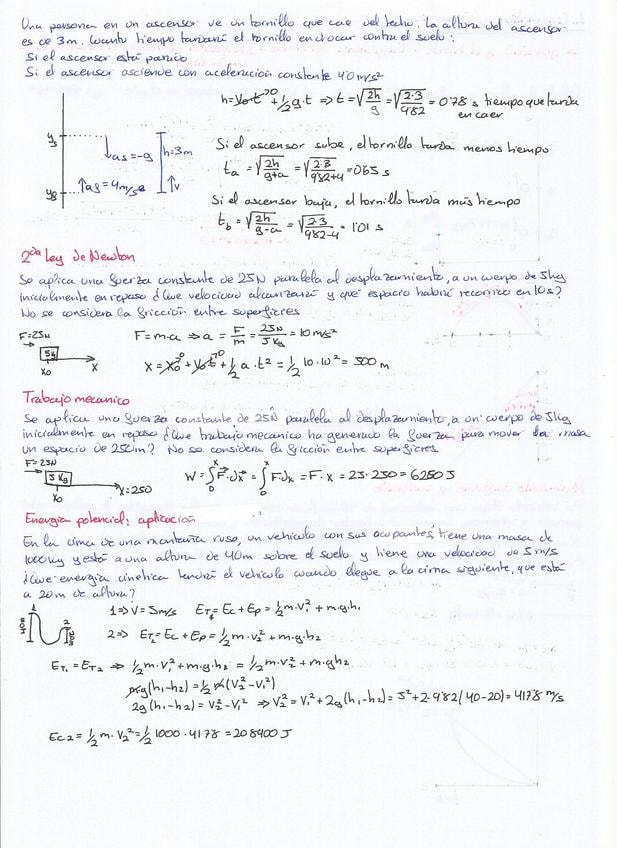 Una persona en un ascensor ve un tornillo que cae del techo. La altura del ascensor
es de 3m. Cuanto tiempo tardará el tornillo en chocar contra el suelo:
Si el ascensor está parado
Si el ascensor asciende con aceleración constante 4'0 m/s²
h=V₀·t + ½ g·t ⇒ t = √(2h/g) = √(2·3/9'82) = 0'78 s tiempo que tarda
en caer
ys
as=-g
h=3m
yg
ag=4m/s²
v
Si el ascensor sube, el tornillo tarda menos tiempo
ta = √(2h/g+a) = √(2·3/9'82+4) = 0'65 s
Si el ascensor baja, el tornillo tarda más tiempo
tb = √(2h/g-a) = √(2·3/9'82-4) = 1'01 s
2ª Ley de Newton
Se aplica una fuerza constante de 25N paralela al desplazamiento, a un cuerpo de 5kg
inicialmente en reposo ¿Que velocidad alcanzará y qué espacio habrá recorrido en 10s?
No se considera la fricción entre superficies
F=25N
5kg
x₀
x
F=m·a ⇒ a = F/m = 25N/5Kg = 10 m/s²
x = x₀ + V₀·t + ½ a·t² = ½ 10·10² = 500 m
Trabajo mecanico
Se aplica una fuerza constante de 25N paralela al desplazamiento, a un cuerpo de 5kg
inicialmente en reposo ¿Que trabajo mecanico ha generado la fuerza para mover la masa
un espacio de 250m? No se considera la fricción entre superficies
F=25N
5 Kg
x₀
x=250
W = ∫₀ˣ F·dx = ∫₀ˣ F·dx = F·x = 25·250 = 6250 J
Energia potencial: aplicación
En la cima de una montaña rusa, un vehiculo con sus ocupantes, tiene una masa de
1000kg y está a una altura de 40m sobre el suelo y tiene una velocidad de 5m/s
¿Que energía cinetica tendrá el vehiculo cuando llegue a la cima siguiente, que está
a 20m de altura?
1
2
1⇒ V=5m/s ET₁=Ec+Ep=½m·V₁²+m·g·h₁
2⇒ ET₂=Ec+Ep=½m·V₂²+m·g·h₂
ET₁=ET₂ ⇒ ½m·V₁²+m·g·h₂ = ½m·V₂²+m·gh₂
m·g(h₁-h₂)=½m(V₂²-V₁²)
2g(h₁-h₂)=V₂²-V₁² ⇒ V₂²=V₁²+2g(h₁-h₂)=5²+2·9'82(40-20)=417'8 m/s
Ec2=½m·V₂²=½1000·417'8=208900 J